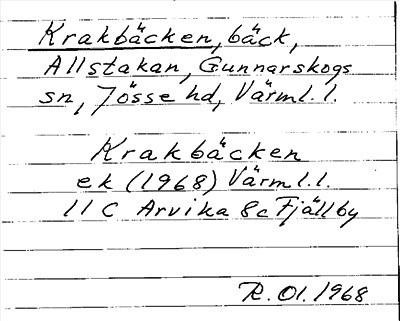 Krakbäcken, bäck,
Allstakan, Gunnarskogs
sn, Jösse hd, Värml. l.
Krakbäcken
ek (1968) Värml. l.
11 C Arvika 8c Fjällby
R. Ol. 1968